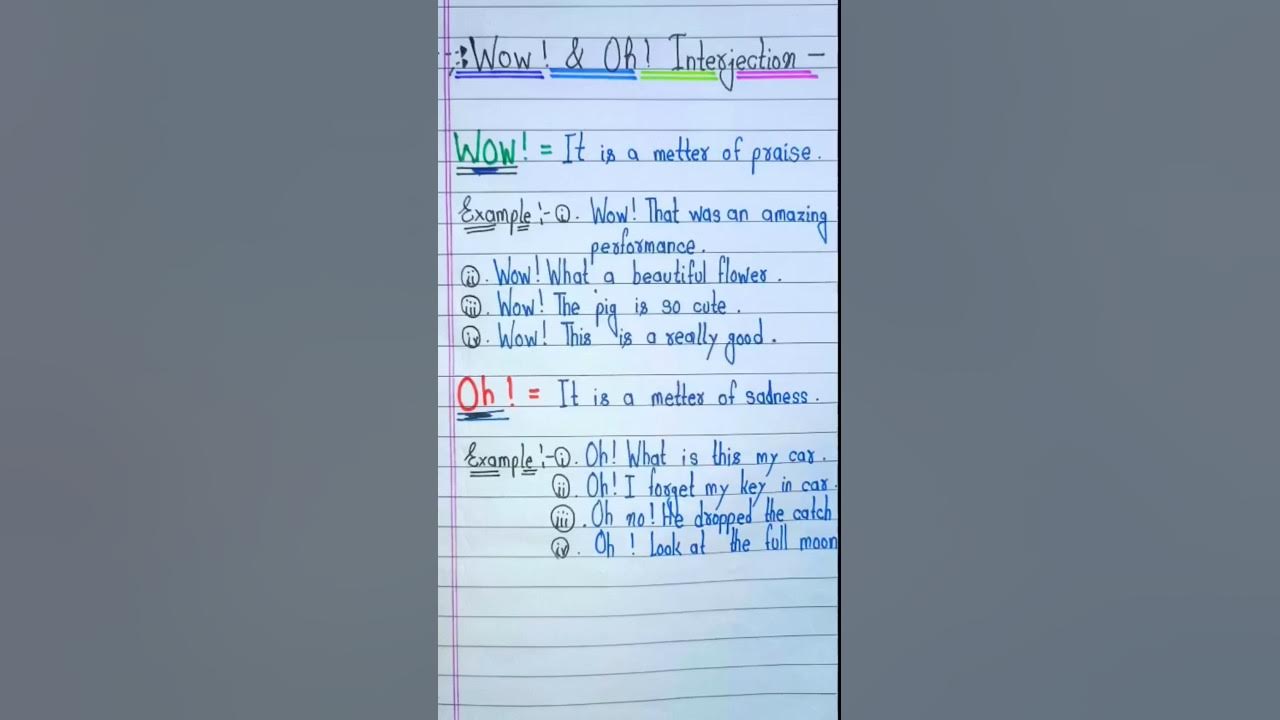 Wow! & Oh! Interjection -
Wow! = It is a metter of praise.
Example :- (i). Wow! That was an amazing
performance.
(ii). Wow! What a beautiful flower.
(iii). Wow! The pig is so cute.
(iv). Wow! This is a really good.
Oh! = It is a metter of sadness.
Example :- (i). Oh! What is this my car.
(ii). Oh! I forget my key in car.
(iii). Oh no! He dropped the catch
(iv). Oh! Look at the full moon